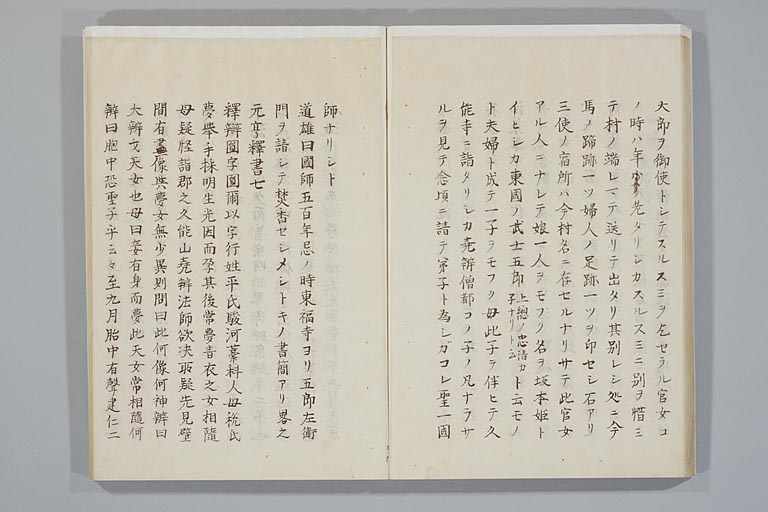 大郎ヲ御使トシテスルスミヲ玉セラル官女コ
ノ時ハ年少先タリシカスルスミニ別ヲ惜ミ
テ村ノ端レマテ送リテ出タリ其別レシ処ニ今
馬ノ蹄跡一ツ婦人ノ足跡一ツヲ印セシ石アリ
三使ノ宿所ハ今村名ニ存セルナリサテ此官女
アル人ニナレテ娘一人ヲモフク名ヲ坂本姫ト
イヒシカ東國ノ武士五郎上総ノ忠清カ子ナリト云ト云モノ
ト夫婦ト成テ一子ヲモフク母此子ヲ伴ヒテ久
能寺ニ詣タリシカ尭辨僧都コノ子ノ凡ナラサ
ルヲ見テ念頃ニ請テ弟子ト為シガコレ聖一國
師ナリシト
道雄曰國師五百年忌ノ時東福寺ヨリ五郎左衛
門ヲ請シテ焚香セシメントキノ書簡アリ畧之
元亨釋書七
釋辯圓字圓爾以字行姓平氏駿河藁科人母税氏
夢擧手採明星光因而孕其後常夢青衣之女相隨
母疑怪詣郡之久能山尭辨法師欲决耴疑先見壁
間有畫像與夢女無少異則問曰此何像何神辨曰
大辨才天女也母曰妾有身而夢此天女常相隨何
辨曰胞中恐聖子乎云々至九月胎中有聲建仁二